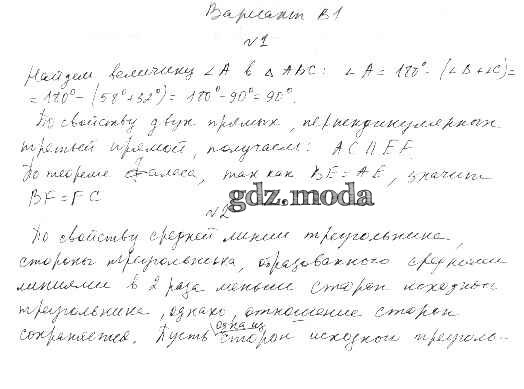 Вариант В1
№1
Найдем величину ∠A в △ABC: ∠A = 180° - (∠B+∠C)=
= 180° - (58°+32°) = 180° - 90° = 90°.
По свойству двух прямых, перпендикулярных
третьей прямой, получаем: AC || EF.
По теореме Фалеса, так как BE = AE, значит
BF = FC
gdz.moda
№2
По свойству средней линии треугольника,
стороны треугольника, образованного средними
линиями в 2 раза меньше сторон исходного
треугольника, однако, отношение сторон
сохраняется. Пусть одна из сторон исходного треуголь-